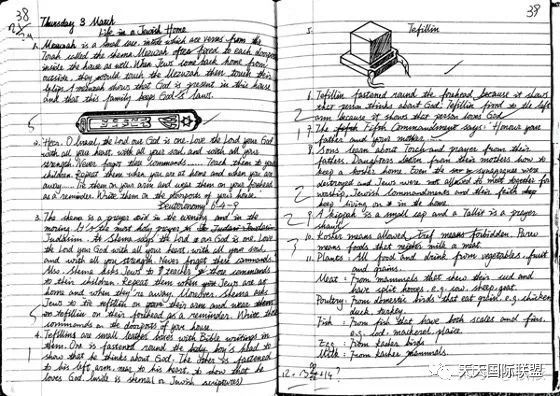 38
Thursday 3 March
Life in a Jewish Home
1. Mezuzah is a small case inside which are verses from the
Torah called the shema. Mezuzah often fixed to each doorpost
inside the house as well. When Jews come back home from
outside, they would touch the Mezuzah then touch their
lips. A mezuzah shows that God is present in this house
and that this family keeps God's laws.
2. Hear, O Israel, the Lord our God is one. Love the Lord your God
with all your heart, with all your soul, and with all your
strength. Never forget these commands. .... Teach them to your
children. Repeat them when you are at home and when you are
away.... Tie them on your arm and wear them on your forehead
as a reminder. Write them on the doorposts of your house.
Deuteronomy 6:4-9
3. The shema is a prayer said in the evening and in the
morning. It's the most holy prayer in
Judaism. As Shema says the Lord our God is one. Love
the Lord you God with all your heart, with all your soul
and with all you strength. Never forget these commands.
Also, shema asks Jews to teach these commands
to their children. Repeat them when you Jews are at
home and when they're away. Moreover, shema asks
Jews to tie tefillin on their arm and wear them
on their forehead as a reminder. Write the
commands on the doorposts of your house.
4. Tefillins are small leather boxes with Bible writings in
them. One is fastened round the holy boy's head to
show that he thinks about God. The other is fastened
to his left arm, near to his heart, to show that he
loves God. (write is shema) or Jewish scriptures)
39
5. Tefillin
1. Tefillin fastened round the forehead, because it shows
that person thinks about God. Tefillin fixed to the left
arm because it shows that person loves God.
The Fifth Commandment says: Honour your
father and your mother.
Sons learn about Torah and prayer from their
fathers. Daughters learn from their mothers how to
keep a kosher home. Even the synagogues were
destroyed and Jews were not allowed to meet together for
worship, Jewish Commandments and their faith
keep living on in the home.
9. A kippah is a small cap and a Tallit is a prayer
shawl.
10. Kosher means allowed, Tref means forbidden. Parev
means foods that neither milk or meat.
11. Plants: All food and drink from vegetables, fruit
and grains.
Meat: From mammals that chew their cud and
have split hooves. e.g. cow, sheep, goat.
Poultry: From domestic birds that eat grain. e.g. chicken,
duck, turkey.
Fish: From fish that have both scales and fins.
e.g. cod, mackerel, plaice.
Egg: From kosher birds
Milk: From kosher mammals.
天天国际联盟